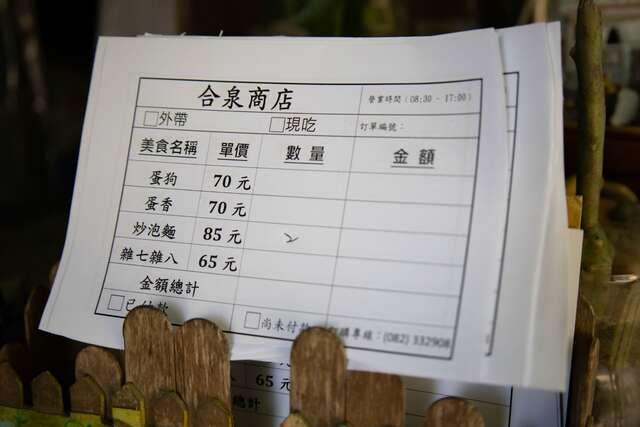 合泉商店 營業時間（08:30 - 17:00）
□外帶 □現吃 訂單編號：
美食名稱 單價 數量 金額
蛋狗 70 元
蛋香 70 元
炒泡麵 85 元
雜七雜八 65 元
金額總計
□已付款 □尚未付款 專線：(082) 332908
65 元
總計